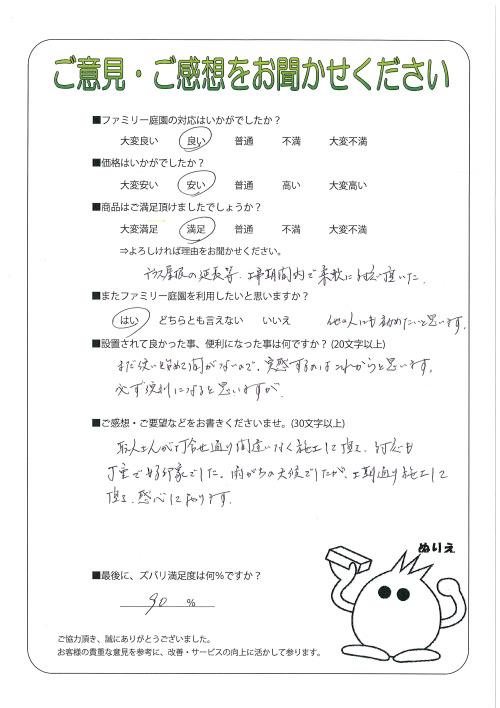 ご意見・ご感想をお聞かせください
■ファミリー庭園の対応はいかがでしたか?
大変良い 良い 普通 不満 大変不満
■価格はいかがでしたか?
大変安い 安い 普通 高い 大変高い
■商品はご満足頂けましたでしょうか?
大変満足 満足 普通 不満 大変不満
⇒よろしければ理由をお聞かせください。
テラス屋根の延長等、工事期間内で柔軟に対応頂いた。
■またファミリー庭園を利用したいと思いますか?
はい どちらとも言えない いいえ 他の人にも勧めたいと思います。
■設置されて良かった事、便利になった事は何ですか? (20文字以上)
まだ使い始めて間がないので、実感するのはこれからと思います。
必ず便利になると思いますが、
■ご感想・ご要望などをお書きくださいませ。(30文字以上)
職人さんが打合せ通り間違いなく施工して頂き、対応も
丁重で好印象でした。雨がちの天候でしたが、工期通り施工して
頂き、感心しております。
ぬりえ
■最後に、ズバリ満足度は何%ですか?
90 %
ご協力頂き、誠にありがとうございました。
お客様の貴重な意見を参考に、改善・サービスの向上に活かして参ります。